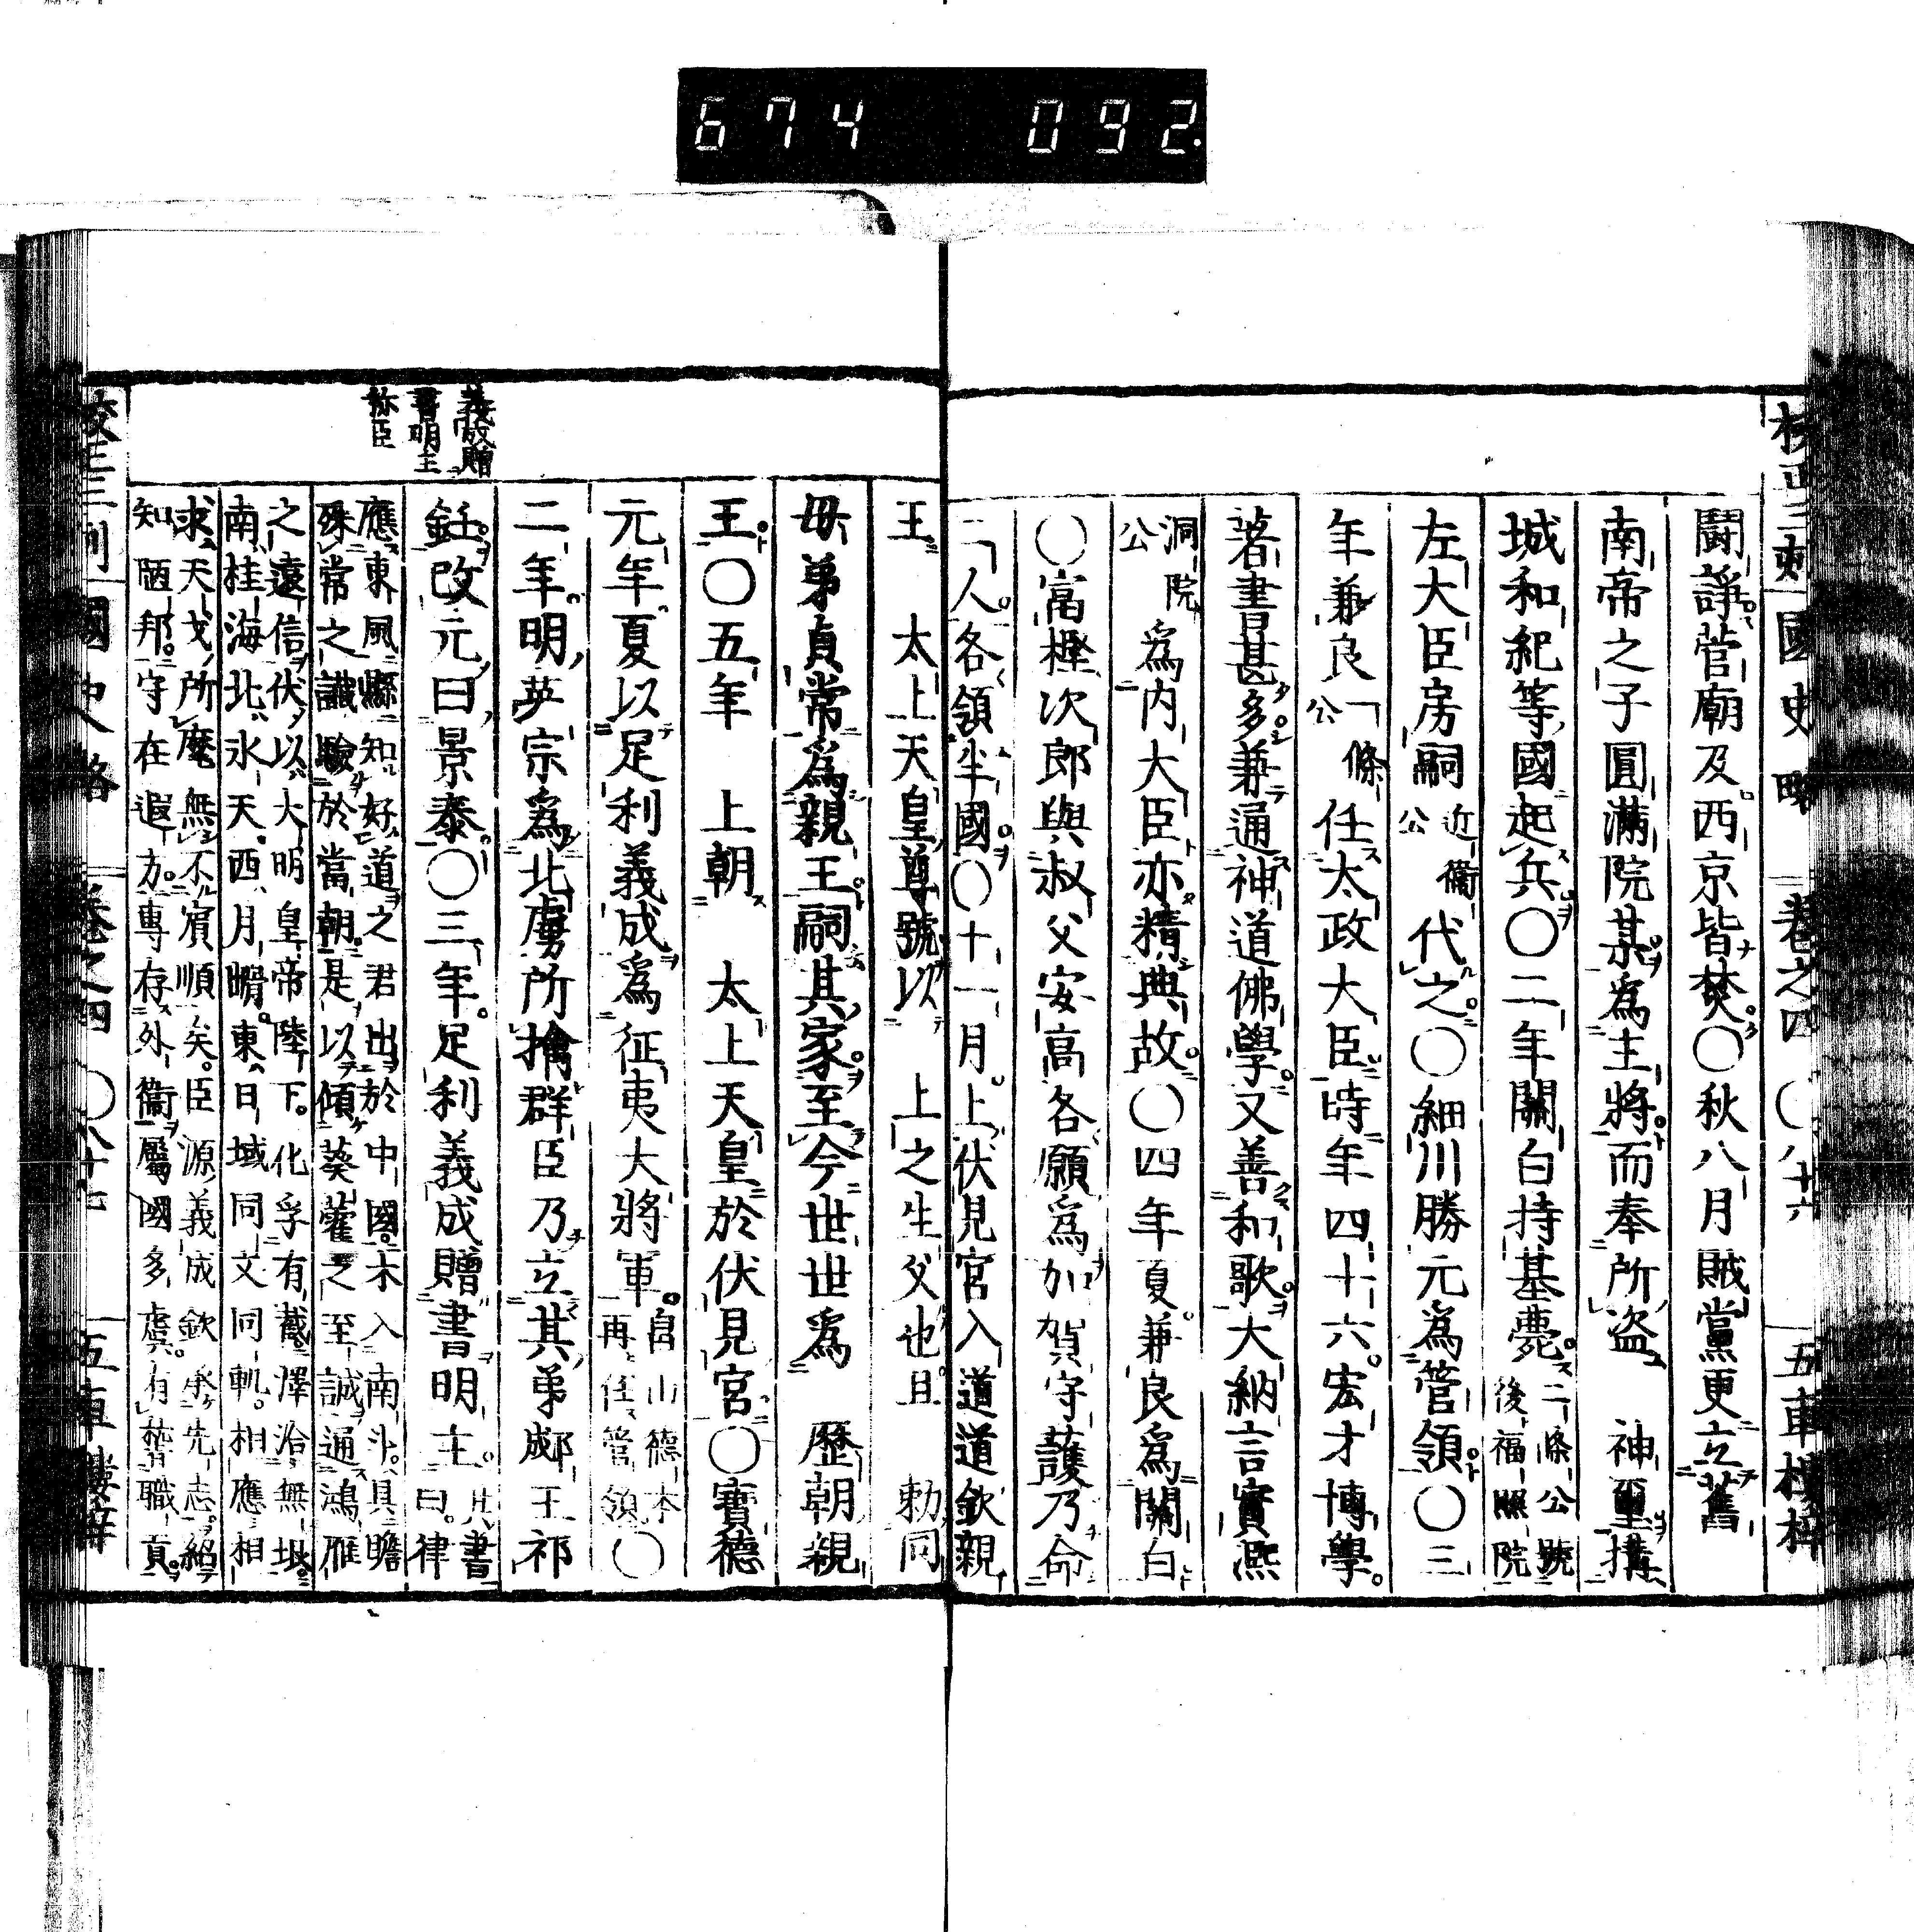 674 092.
校正三刻國史略 卷之四 〇八十六 五車樓梓
鬪諍菅廟及西京皆焚〇秋八月賊黨更立舊
南帝之子圓滿院某爲主將而奉所盗 神璽搆
城和紀等國起兵〇二年關白持基薨二條公號後福照院
左大臣房嗣近衞公代之〇細川勝元爲管領〇三
年兼良一條公任太政大臣時年四十六宏才博學
著書甚多兼通神道佛學又善和歌大納言實熙
洞院公爲内大臣亦精典故〇四年夏兼良爲關白
〇富樫次郎與叔父安高各願爲加賀守護乃命
二人各領半國〇十一月上伏見宮入道道欽親
王 太上天皇尊號以 上之生父也且 勅同
母弟貞常爲親王嗣其家至今世世爲 歷朝親
王〇五年 上朝 太上天皇於伏見宮〇寶德
元年夏以足利義成爲征夷大將軍畠山德本再任管領〇
二年明英宗爲北虜所擒群臣乃立其弟郕王祁
鈺改元曰景泰〇三年足利義成贈書明主其書曰律
應東風縣知好道之君出於中國木入南斗具瞻
殊常之識驗於當朝是以傾葵藿之至誠通鴻雁
之遠信伏以大明皇帝陛下化孚有截澤洽無垠
南桂海北氷天西月𦜝東日域同文同軌相應相
求天戈所麾無不賓順矣臣源義成欽承先志紹
知陋邦守在遐方專存外衞屬國多虞有替職貢
義成贈
書明主
称臣
校正三刻國史略 卷之四 〇八十七 五車樓梓